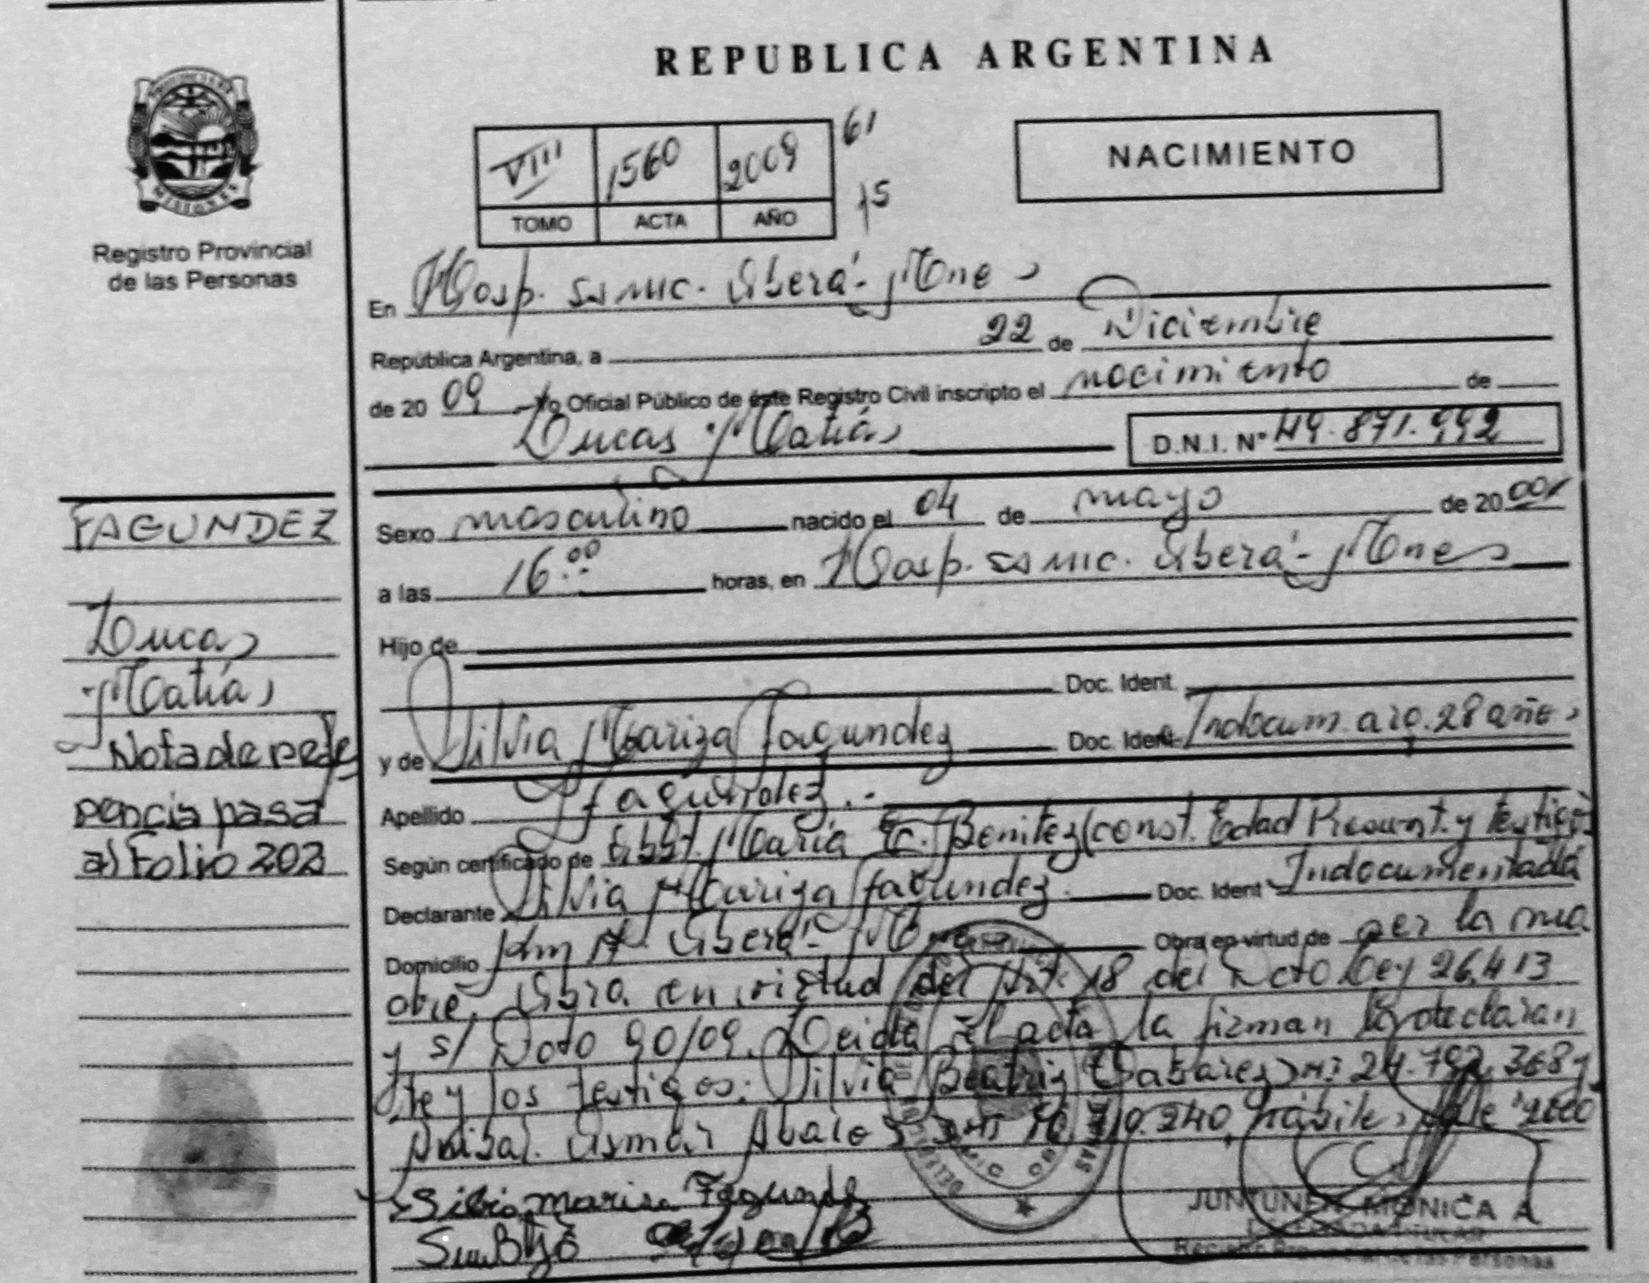 REPUBLICA ARGENTINA
NACIMIENTO
VIII 1560 2009 61
15
TOMO ACTA AÑO
MISIONES
Registro Provincial
de las Personas
En Hosp. SAMIC. Oberá - Mnes
República Argentina, a 22 de Diciembre
de 20 09 yo Oficial Público de éste Registro Civil inscripto el nacimiento de
Lucas Matías
D.N.I. Nº 49.871.992
Sexo masculino nacido el 04 de mayo de 20
a las 16:00 horas, en Hosp. SAMIC. Oberá - Mnes
Hijo de
Doc. Ident.
y de Silvia Mariza Fagundez Doc. Ident. Indocum. arg. 28 años
Apellido Fagundez.-
Según certificado de Obst. María E. Benitez (const. Edad Presunt. y testigos
Declarante Silvia Mariza Fagundez. Doc. Ident Indocumentada
Domicilio Km Oberá - Mnes Obra en virtud de ser la ma
dre. Obra en virtud del Art. 18 del Dcto Ley 26.413
y s/ Dcto 90/09. Leida el acta la firman la declaran
te y los testigos: Silvia Beatriz 24.792.368 y
Anibal Osmar 240, hábiles, vale "2000
Silvia Marisa Fagundez
JUNTUNEN, MONICA A
DELEGADA TITULAR
Registro Provincial de las Personas
FAGUNDEZ
Lucas
Matías
Nota de
pencia pasa
al Folio 202